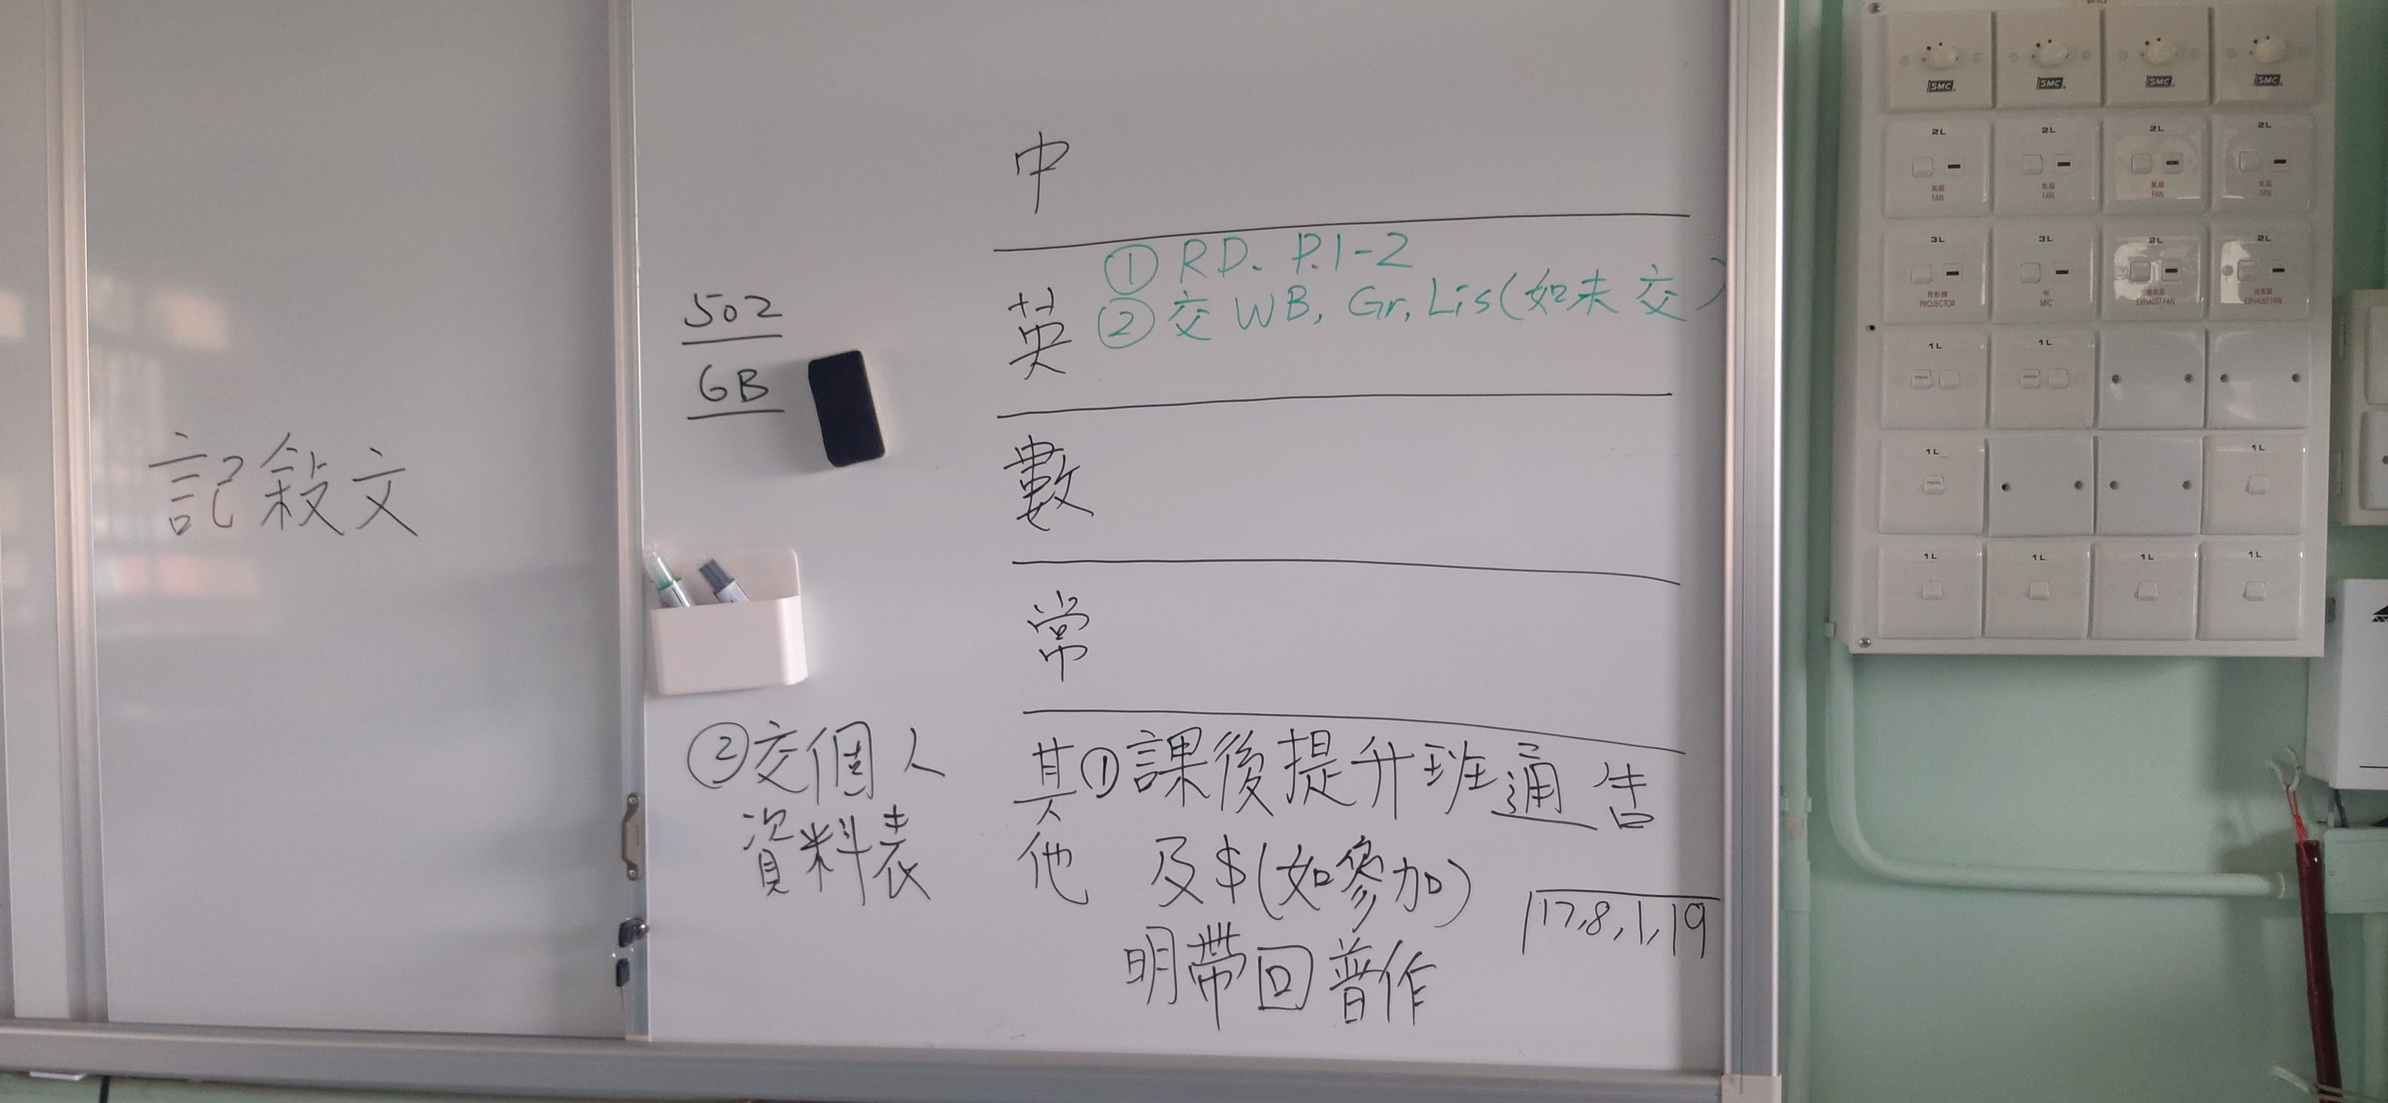 記敍文
502
6B
中
英
① RD. P.1-2
② 交 WB, Gr, Lis (如未交)
數
常
其他
① 課後提升班通告
及$(如參加)
明帶回普作
② 交個人
資料表
17,8,1,19
SMC SMC SMC SMC
2L 2L 2L 2L
風扇 風扇 風扇 風扇
FAN FAN FAN FAN
3L 3L 2L 2L
投影機 咪 抽氣扇 抽氣扇
PROJECTOR MIC EXHAUST FAN EXHAUST FAN
1L 1L
1L 1L
1L 1L 1L 1L